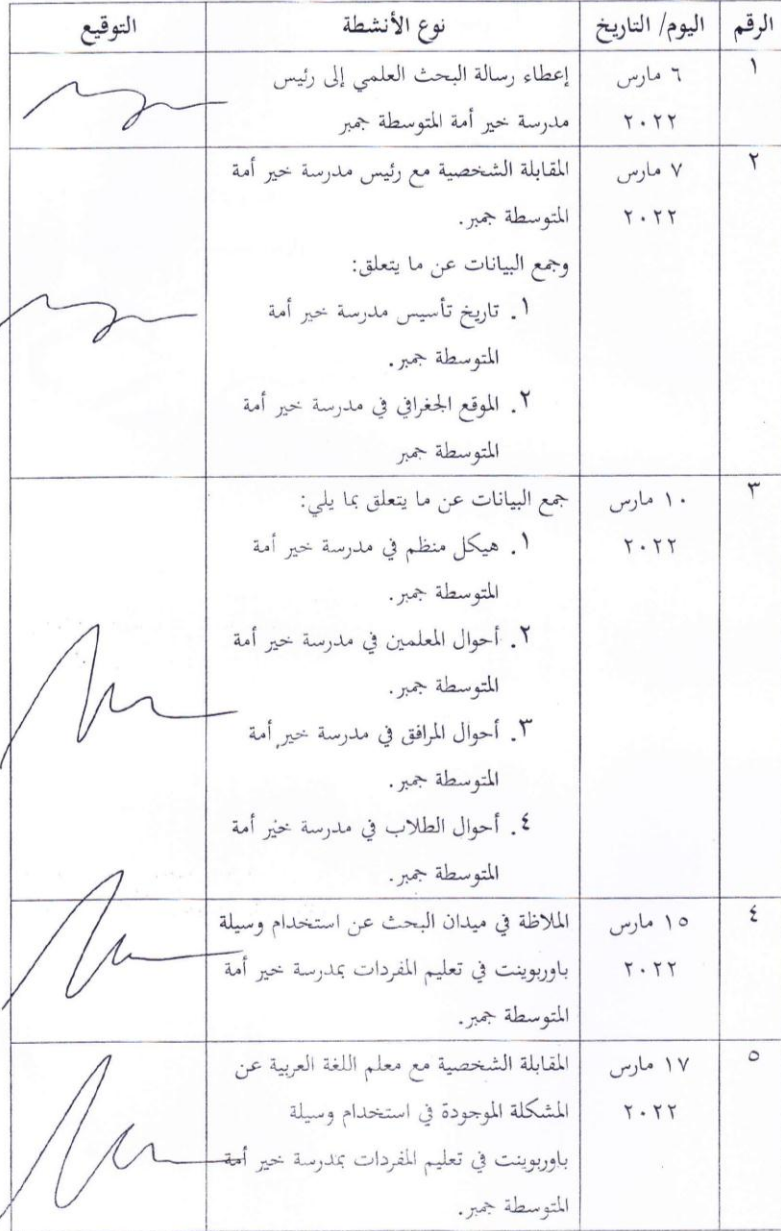 الرقم اليوم/ التاريخ نوع الأنشطة التوقيع
١ ٦ مارس إعطاء رسالة البحث العلمي إلى رئيس
٢٠٢٢ مدرسة خير أمة المتوسطة جمبر
٢ ٧ مارس المقابلة الشخصية مع رئيس مدرسة خير أمة
٢٠٢٢ المتوسطة جمبر.
وجمع البيانات عن ما يتعلق:
١. تاريخ تأسيس مدرسة خير أمة
المتوسطة جمبر.
٢. الموقع الجغرافي في مدرسة خير أمة
المتوسطة جمبر
٣ ١٠ مارس جمع البيانات عن ما يتعلق بما يلي:
٢٠٢٢ ١. هيكل منظم في مدرسة خير أمة
المتوسطة جمبر.
٢. أحوال المعلمين في مدرسة خير أمة
المتوسطة جمبر.
٣. أحوال المرافق في مدرسة خير أمة
المتوسطة جمبر.
٤. أحوال الطلاب في مدرسة خير أمة
المتوسطة جمبر.
٤ ١٥ مارس الملاظة في ميدان البحث عن استخدام وسيلة
٢٠٢٢ باوربوينت في تعليم المفردات بمدرسة خير أمة
المتوسطة جمبر.
٥ ١٧ مارس المقابلة الشخصية مع معلم اللغة العربية عن
٢٠٢٢ المشكلة الموجودة في استخدام وسيلة
باوربوينت في تعليم المفردات بمدرسة خير أمة
المتوسطة جمبر.